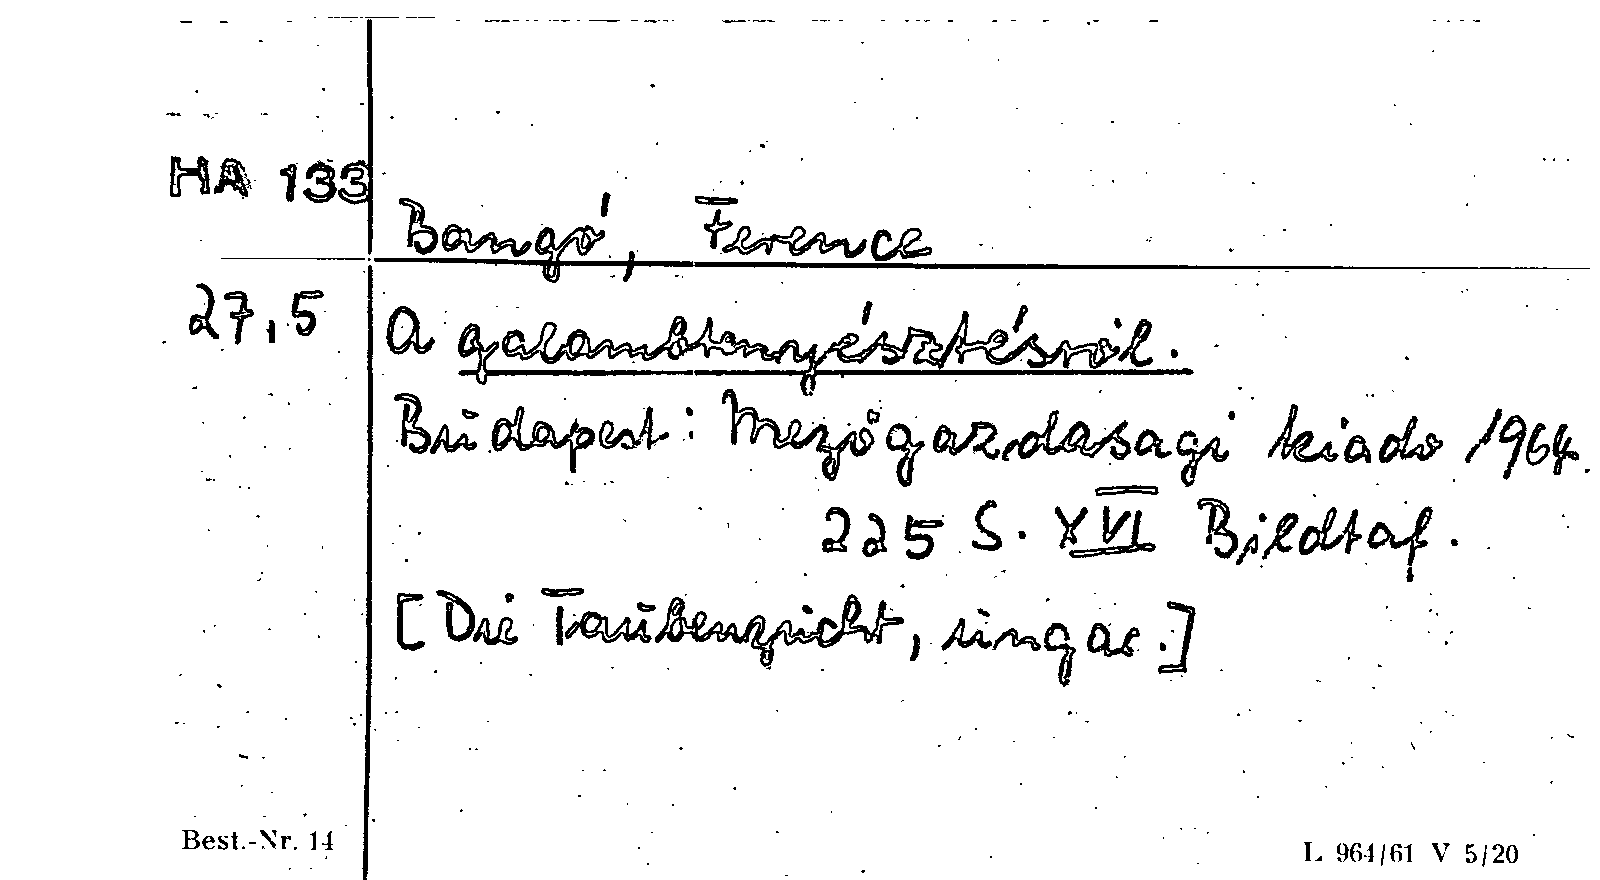 HA 133
Bangó, Ference
27,5
A galambtenyésztésról.
Budapest: Mezögazdasagi kiado 1964.
225 S. XVI Bildtaf.
[Die Taubenzucht, ungar.]
Best.-Nr. 14
L 964/61 V 5/20